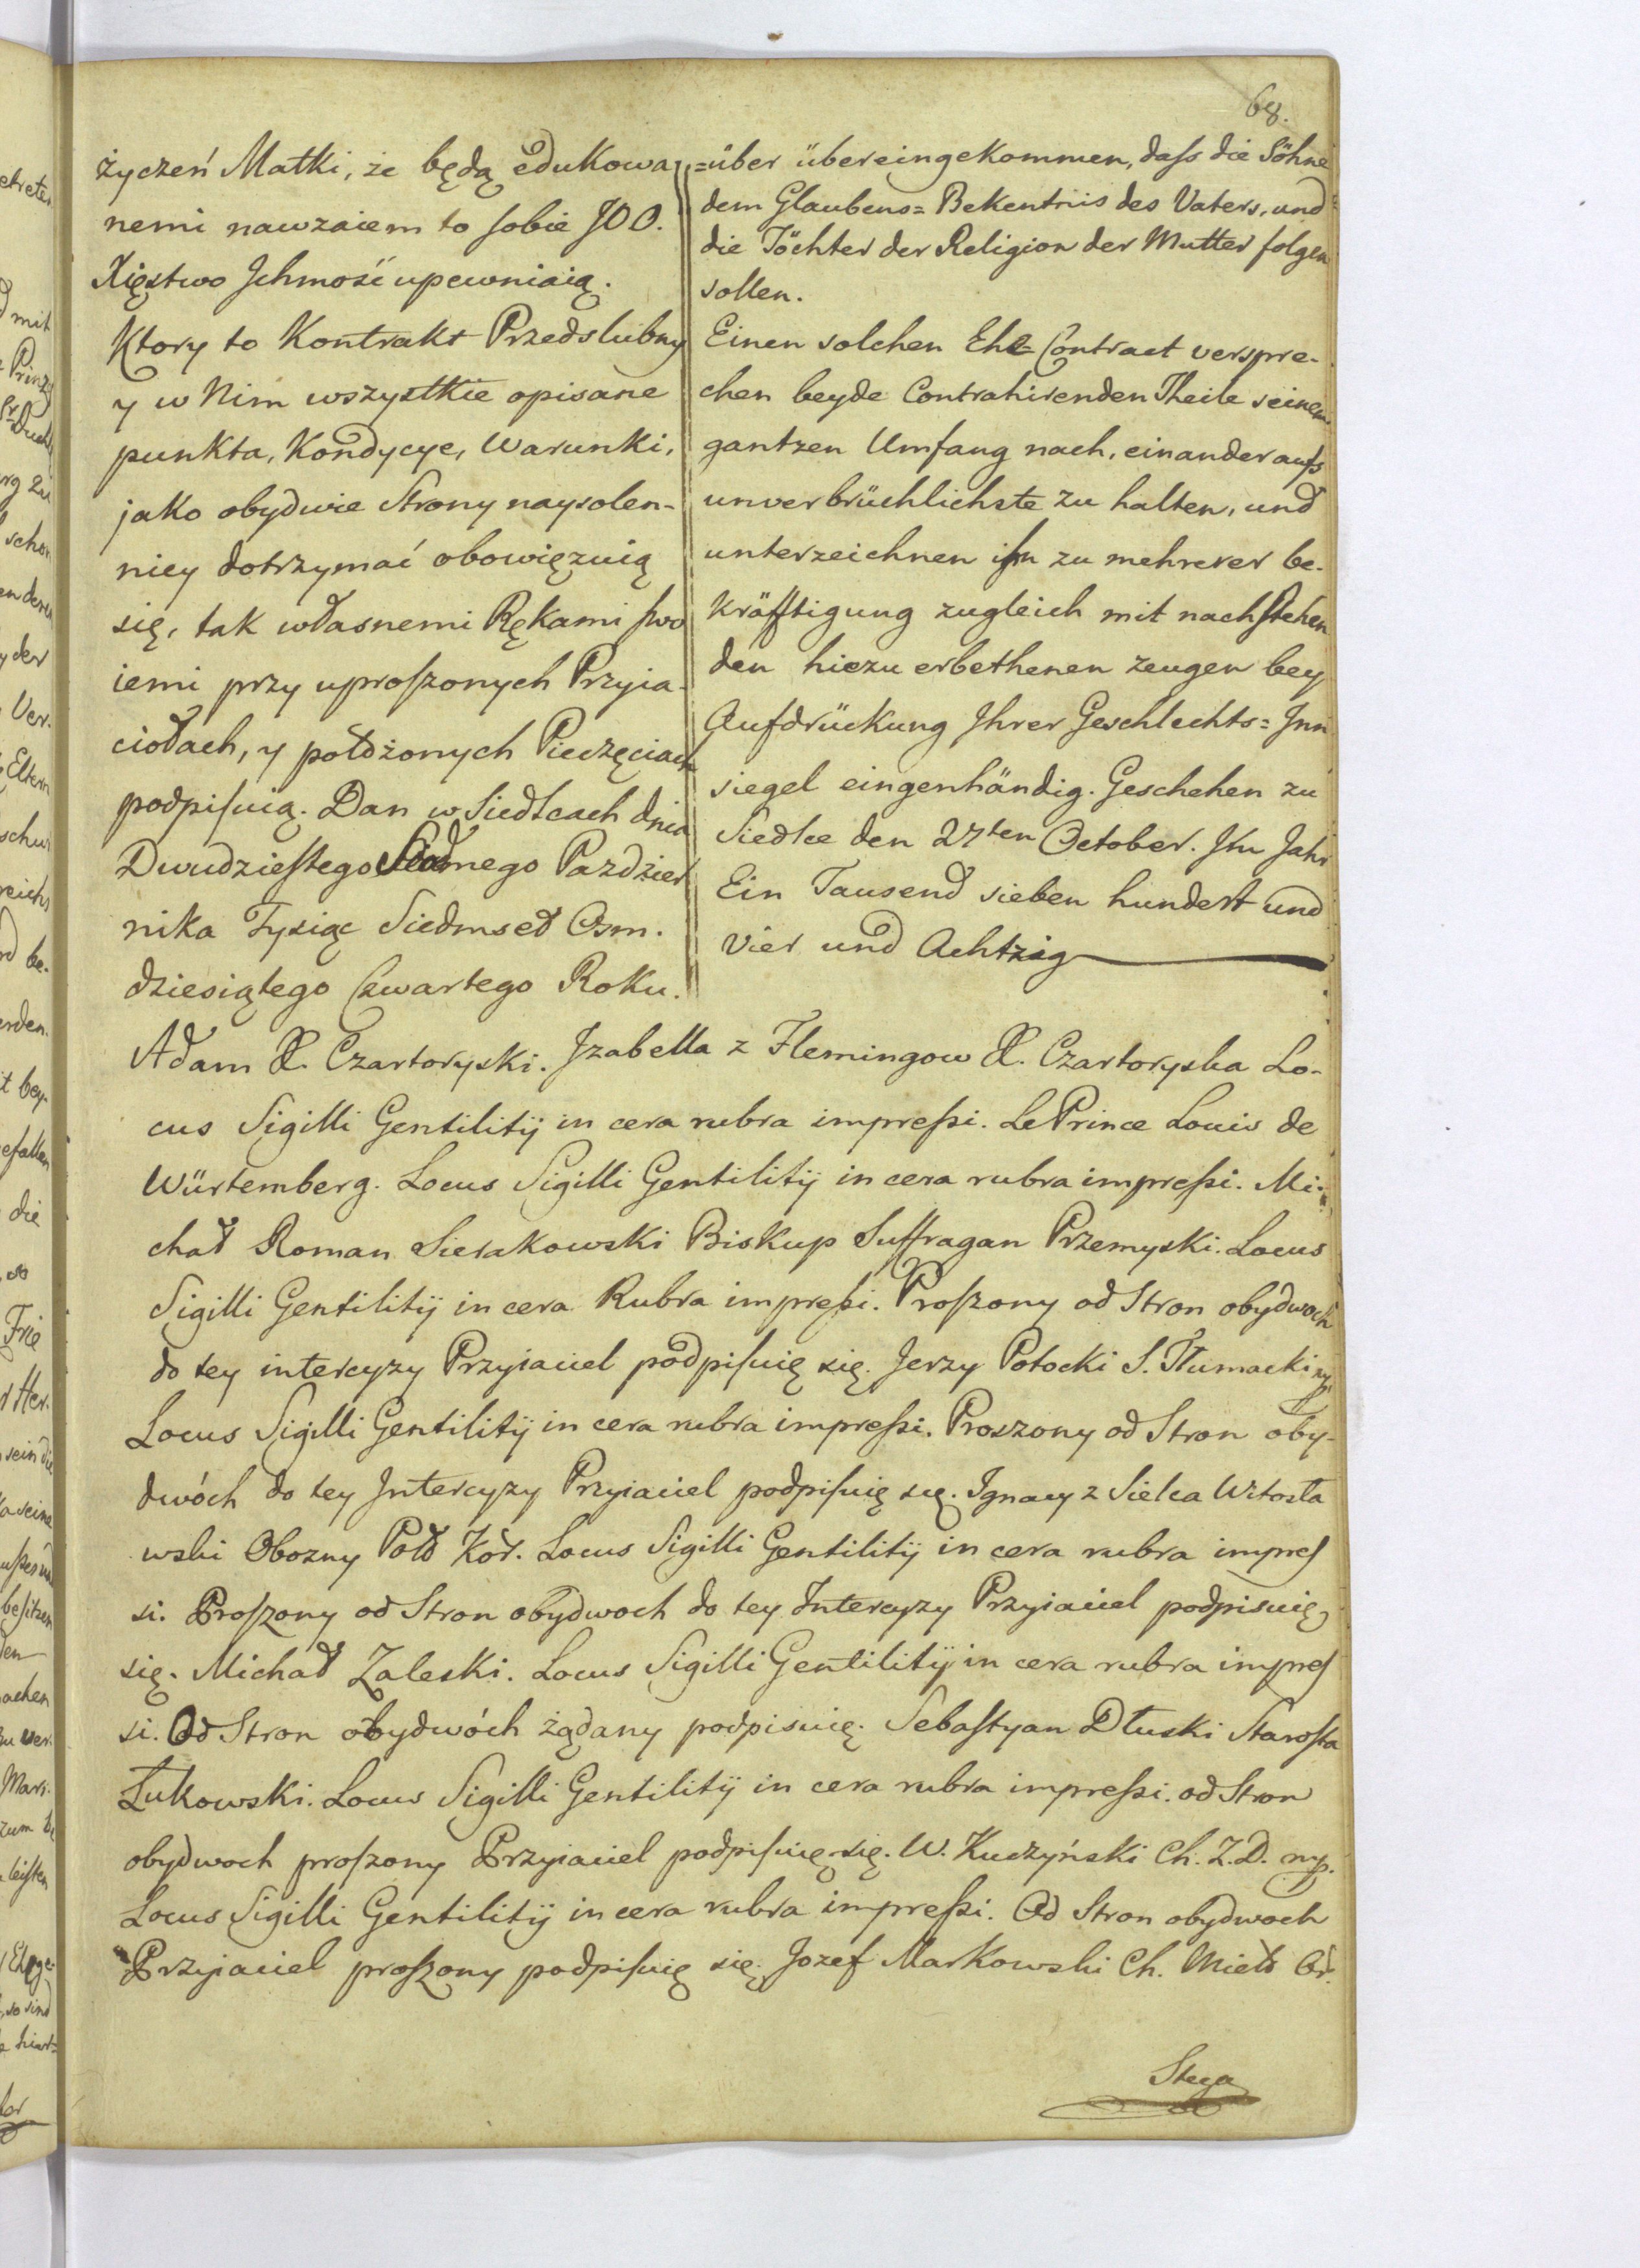 68.
życzeń Matki, że będą edukowa
nemi nawzaiem to sobie JOO.
Xięstwo Jchmość upewniaią.
Ktory to Kontrakt Przedslubny
y w Nim wszystkie opisane
punkta, Kondycye, Warunki,
jako obydwie Strony naysolen-
niey dotrzymać obowięzuią
się, tak własnemi Rękami swo
iemi przy uproszonych Przyia-
ciołach, y położonych Pieczęciach
podpisuią. Dan w Siedlcach dnia
Dwudziestego Siodmego Pazdzier
nika Tysiąc Siedmset Osm.
dziesiątego Czwartego Roku.
=über übereingekommen, daſs die Söhne
dem Glaubens= Bekentniis des Vaters, und
die Töchter der Religion der Mutter folgen
sollen.
Einen solchen Ehe= Contract verspre-
chen beyde Contrahirenden Theile seinem
gantzen Umfang nach, einander aufs
unverbrüchlichste zu halten, und
unterzeichnen ihn zu mehrerer be-
kräfftigung zugleich mit nachstehen
den hiezu erbethenen zeugen bey
Aufdrückung Jhrer Geschlechts= Jnn
siegel eingenhändig. Geschehen zu
Siedlce den 27ten October. Jm Jahr
Ein Tausend sieben hundert und
vier und Achtzig
Adam X. Czartoryski. Jzabella z Flemingow X. Czartoryska Lo-
cus Sigilli Gentilitij in cera rubra impreſsi. Le Prince Louis de
Würtemberg. Locus Sigilli Gentilitij in cera rubra impreſsi. Mi-
chał Roman Sierakowski Biskup Suffragan Przemyski. Locus
Sigilli Gentilitij in cera Rubra impreſsi. Proſzony od Stron obydwoch
do tey intercyzy Przyiaciel podpiſuię się. Jerzy Potocki S. Tłumacki mp
Locus Sigilli Gentilitij in cera rubra impreſsi. Proszony od Stron oby-
dwóch do tey Jntercyzy Przyiaciel podpiſuię się. Jgnacy z Sielca Witosła
wski Obozny Poł Kor. Locus Sigilli Gentilitij in cera rubra impreſ
si. Proſzony od Stron obydwoch do tey Intercyzy Przyiaciel podpisuię
się. Michał Zaleski. Locus Sigilli Gentilitij in cera rubra impreſ
si. Od Stron obydwóch żądany podpisuię. Sebaſtyan Dłuski Staroſta
Łukowski. Locus Sigilli Gentilitij in cera rubra impreſsi. od Stron
obydwoch proſzony Przyiaciel podpiſuię się. W. Kuczyński Ch. Z. D. mp.
Locus Sigilli Gentilitij in cera rubra impreſsi. Od Stron obydwoch
Przyjaciel proſzony podpiſuię się. Jozef Markowski Ch. Mielo Or.